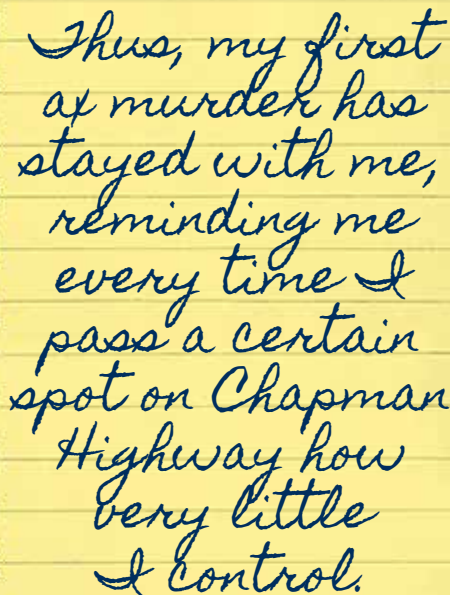 Thus, my first
ax murder has
stayed with me,
reminding me
every time I
pass a certain
spot on Chapman
Highway how
very little
I control.